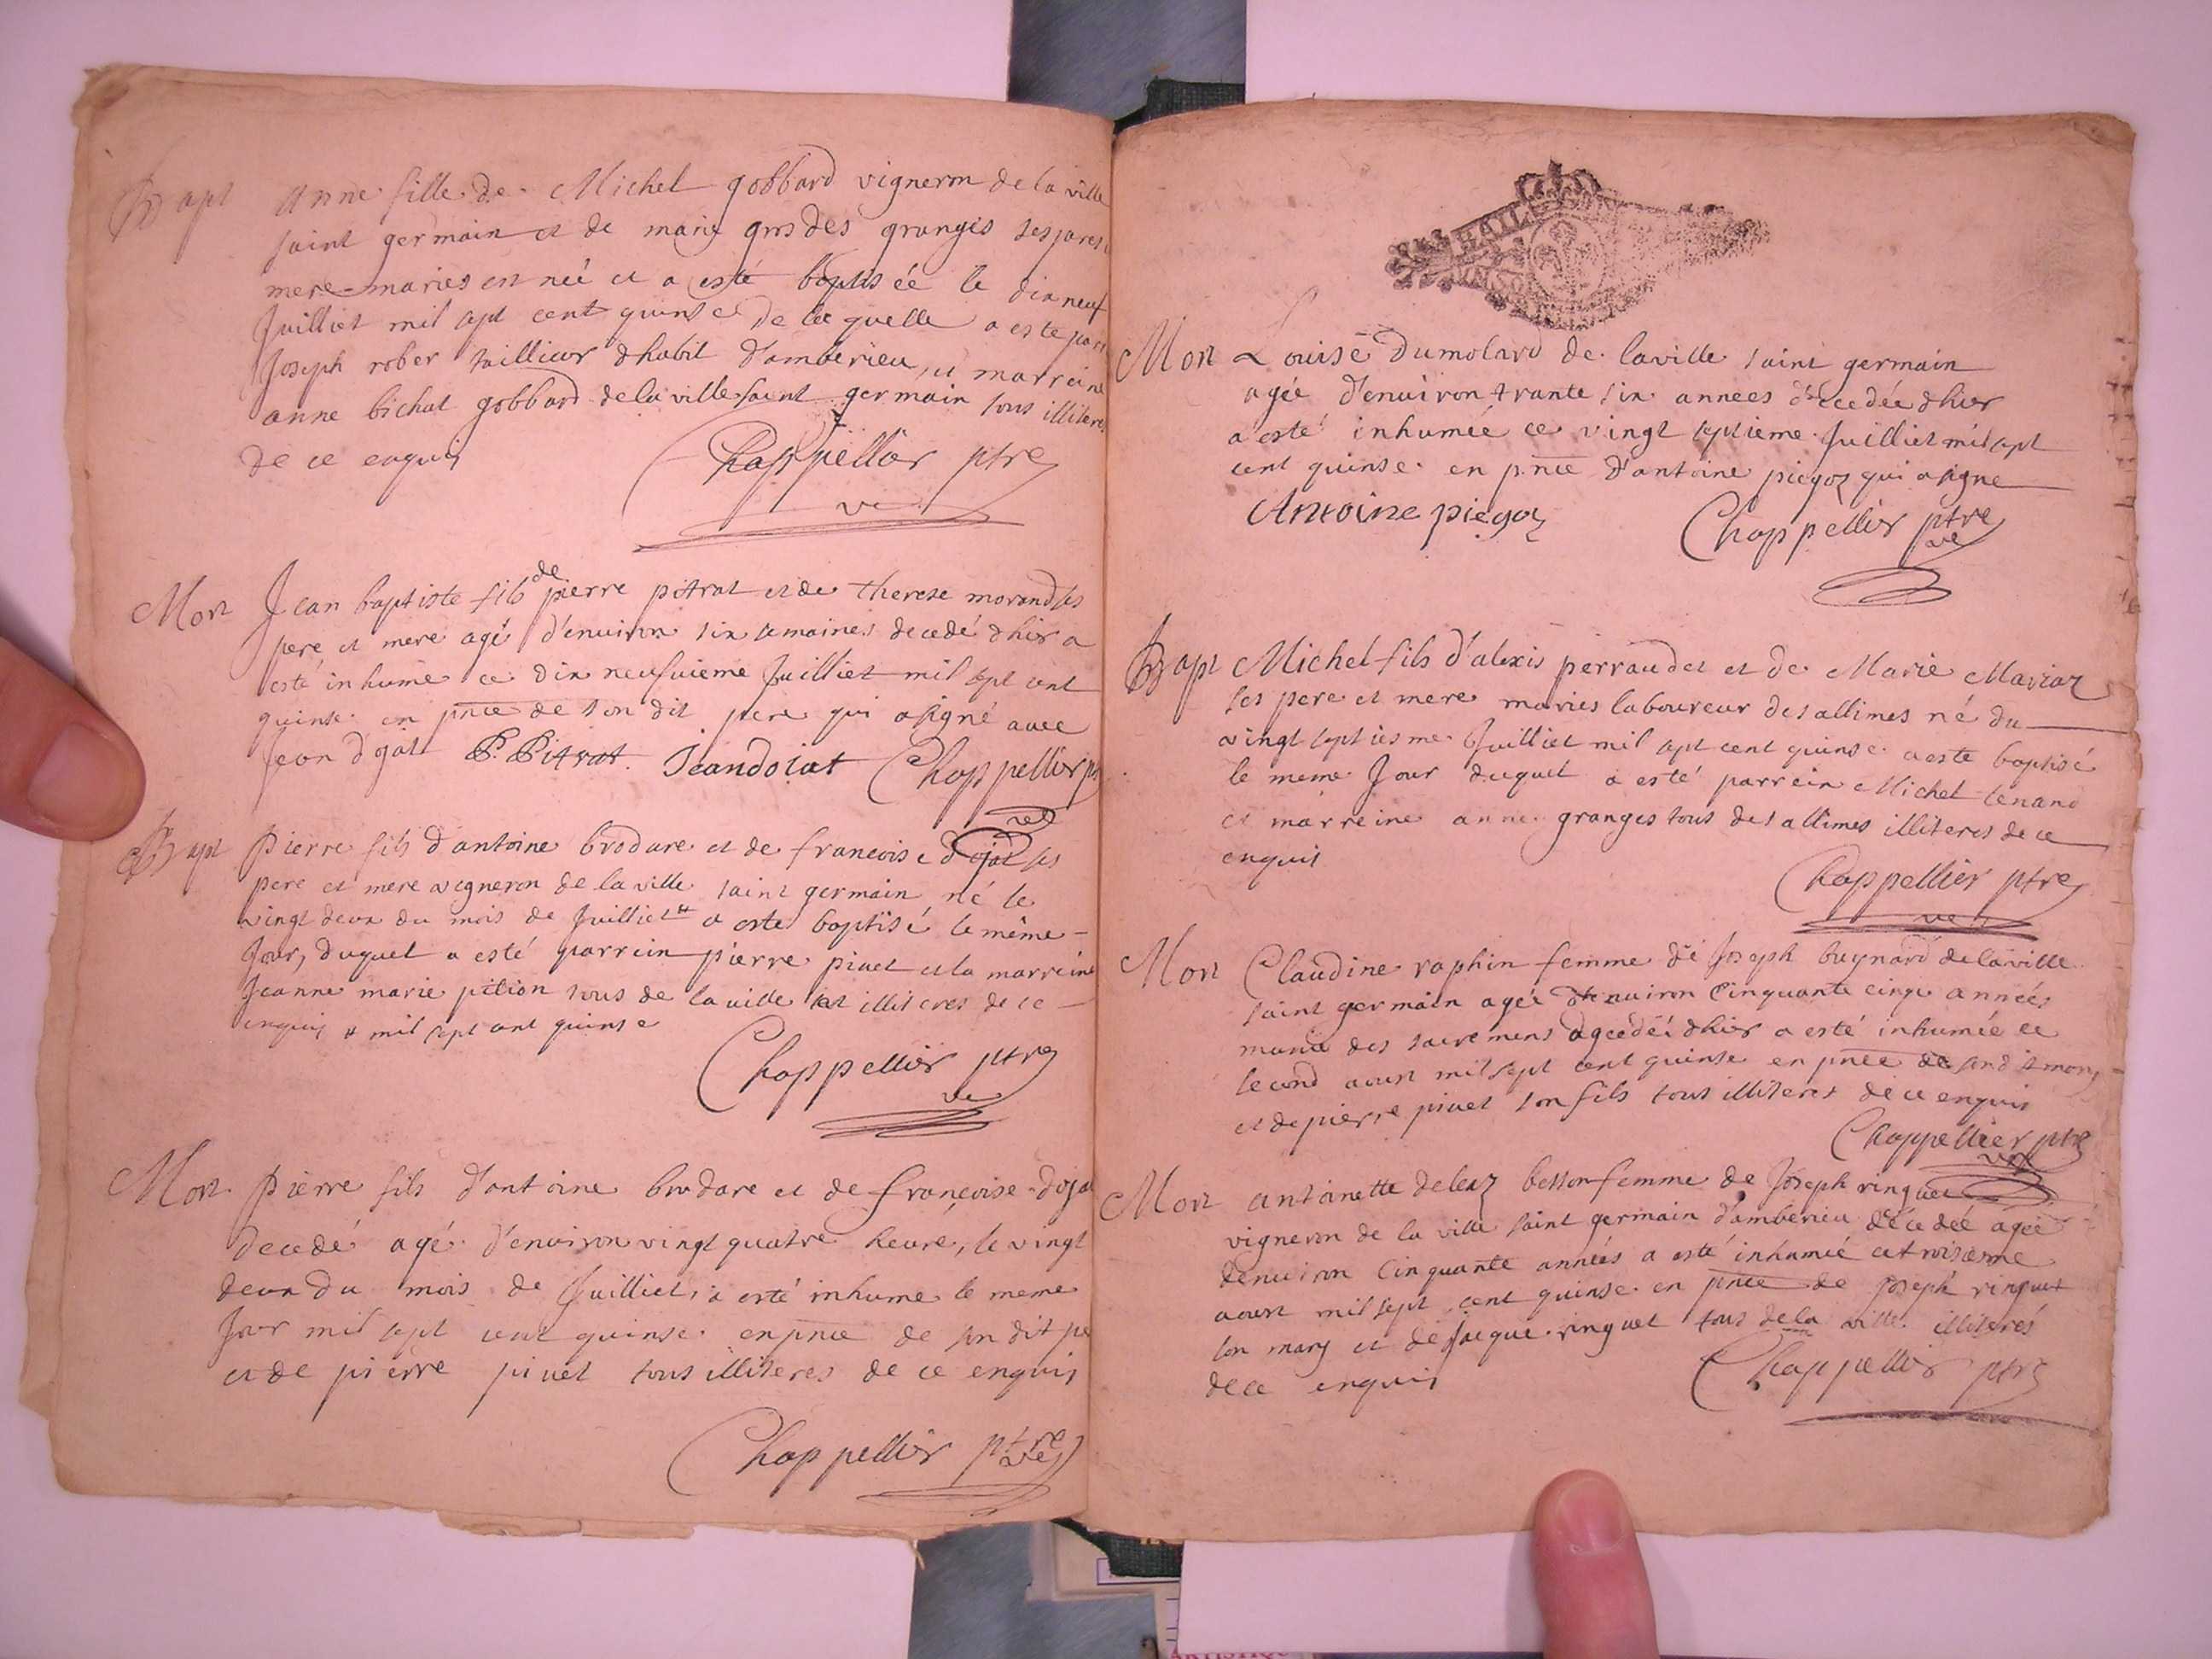 Bapt Anne fille de Michel gobbard vigneron de la ville
saint germain et de marie gros des granges ses pere
mere maries est née et a esté baptisée le dix neuf
Juilliet mil sept cent quinse de laquelle a este parr
Joseph rober taillieur dhabit d'amberieu et marreine
anne bichat gobbard de la ville saint germain tous illiteres
de ce enquis
Chappellier ptre
ve
Mort Jean baptiste fils de pierre pitrat et de therese morand ses
pere et mere agé d'enuiron six semaines decedé dhier a
esté inhumé ce dix neufuieme Juilliet mil sept cent
quinse en pnce de son dit pere qui a signé auec
Jean dojat P. Pitrat Jean doiat Chappellier p
ve
Bapt Pierre fils d'antoine brodare et de francoise dojat ses
pere et mere vigneron de la ville saint germain né le
vingt deux du mois de Juilliet # a este baptisé le même
Jour, duquel a esté parrein pierre piuet et la marreine
Jeanne marie pition tous de la ville et illiteres de ce
enquis # mil sept cent quinse
Chappellier ptre
ve
Mort Pierre fils d'antoine brodare et de françoise doja
decedé agé d'enuiron vingt quatre heure, le vingt
deux du mois de Juilliet, a esté inhume le meme
Jour mil sept cent quinse en pnce de son dit pe
et de pierre piuet tous illiteres de ce enquis
Chappellier ptre
ve
Mort Louise Dumolard de la ville saint germain
agée d'enuiron trante six années décedée dhier
a esté inhumée ce vingt septieme Juilliet mil sept
cent quinse en pnce d'antoine piegoz qui a signe
Antoine piegoz Chappellier ptre
ve
Bapt Michel fils d'alexis perraudet et de Marie Mariaz
ses pere et mere maries laboureur des allimes né du
vingt septiesme Juilliet mil sept cent quinse a este baptisé
le meme Jour duquel a esté parrein Michel tenand
et marreine anne granges tous des allimes illiteres de ce
enquis
Chappellier ptre
ve
Mort Claudine raphin femme de Joseph buynard de la ville
saint germain agée denuiron Cinquante cinq années
munie des sacremens décedée dhier a esté inhumée ce
second aoust mil sept cent quinse en pnce de son dit mary
et de pierre piuet son fils tous illiteres de ce enquis
Chappellier ptre
ve
Mort antoinette deleaz besson femme de Joseph ringuet
vigneron de la ville saint germain d'amberieu décedée agée
denuiron Cinquante années a esté inhumée ce troisieme
aoust mil sept cent quinse en pnce de Joseph ringuet
son mary et de Jacque ringuet tous de la ville illiterés
de ce enquis
Chappellier ptre